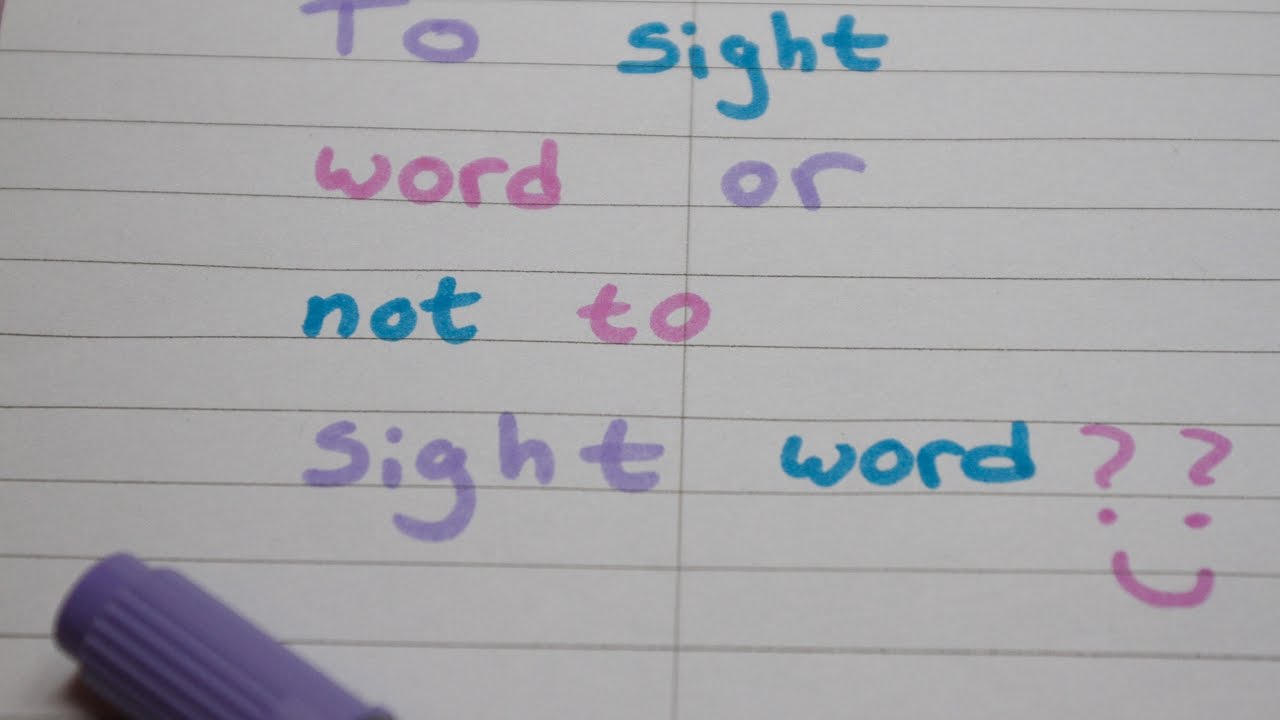 To sight
word or
not to
sight word??